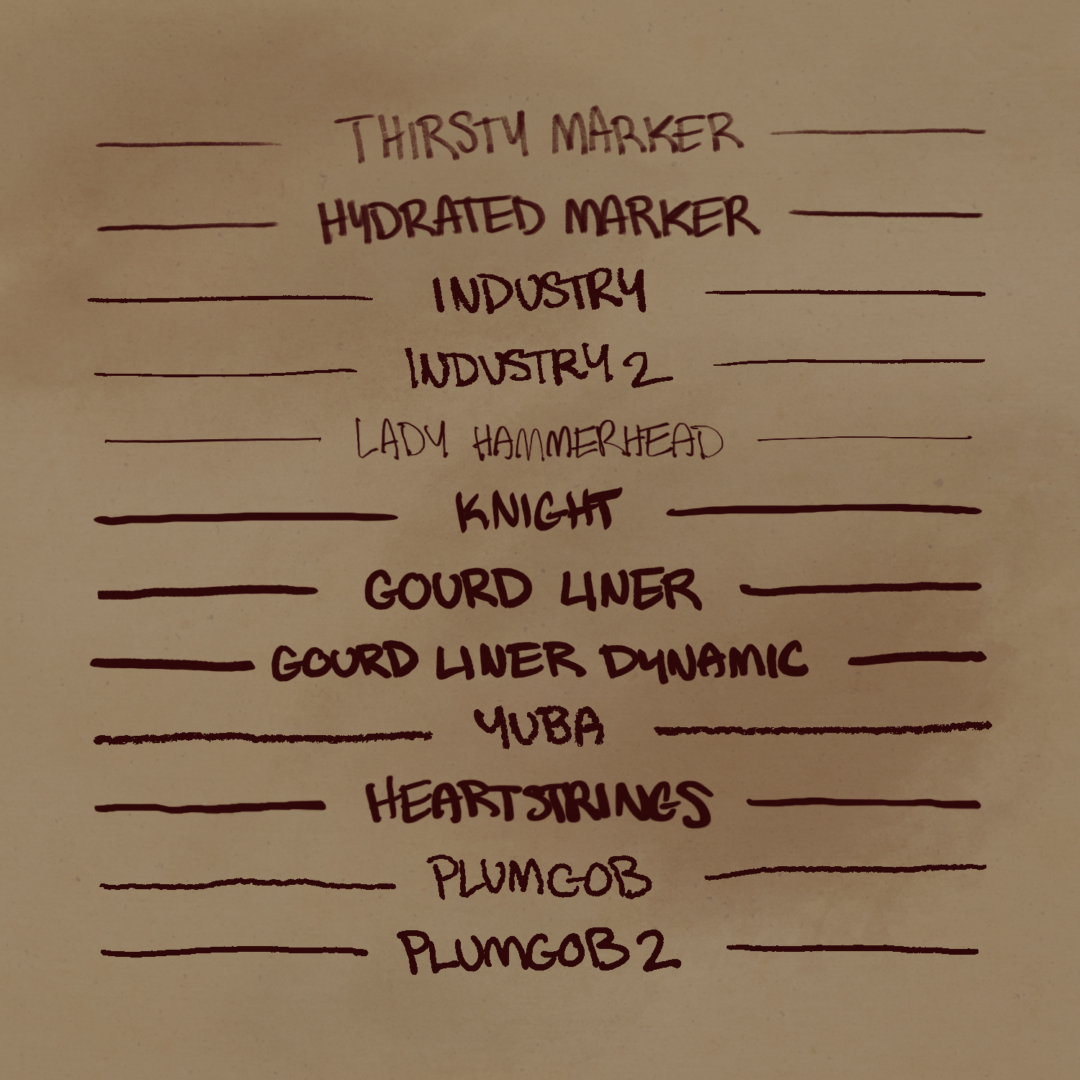 THIRSTY MARKER
HYDRATED MARKER
INDUSTRY
INDUSTRY 2
LADY HAMMERHEAD
KNIGHT
GOURD LINER
GOURD LINER DYNAMIC
YUBA
HEARTSTRINGS
PLUMGOB
PLUMGOB 2